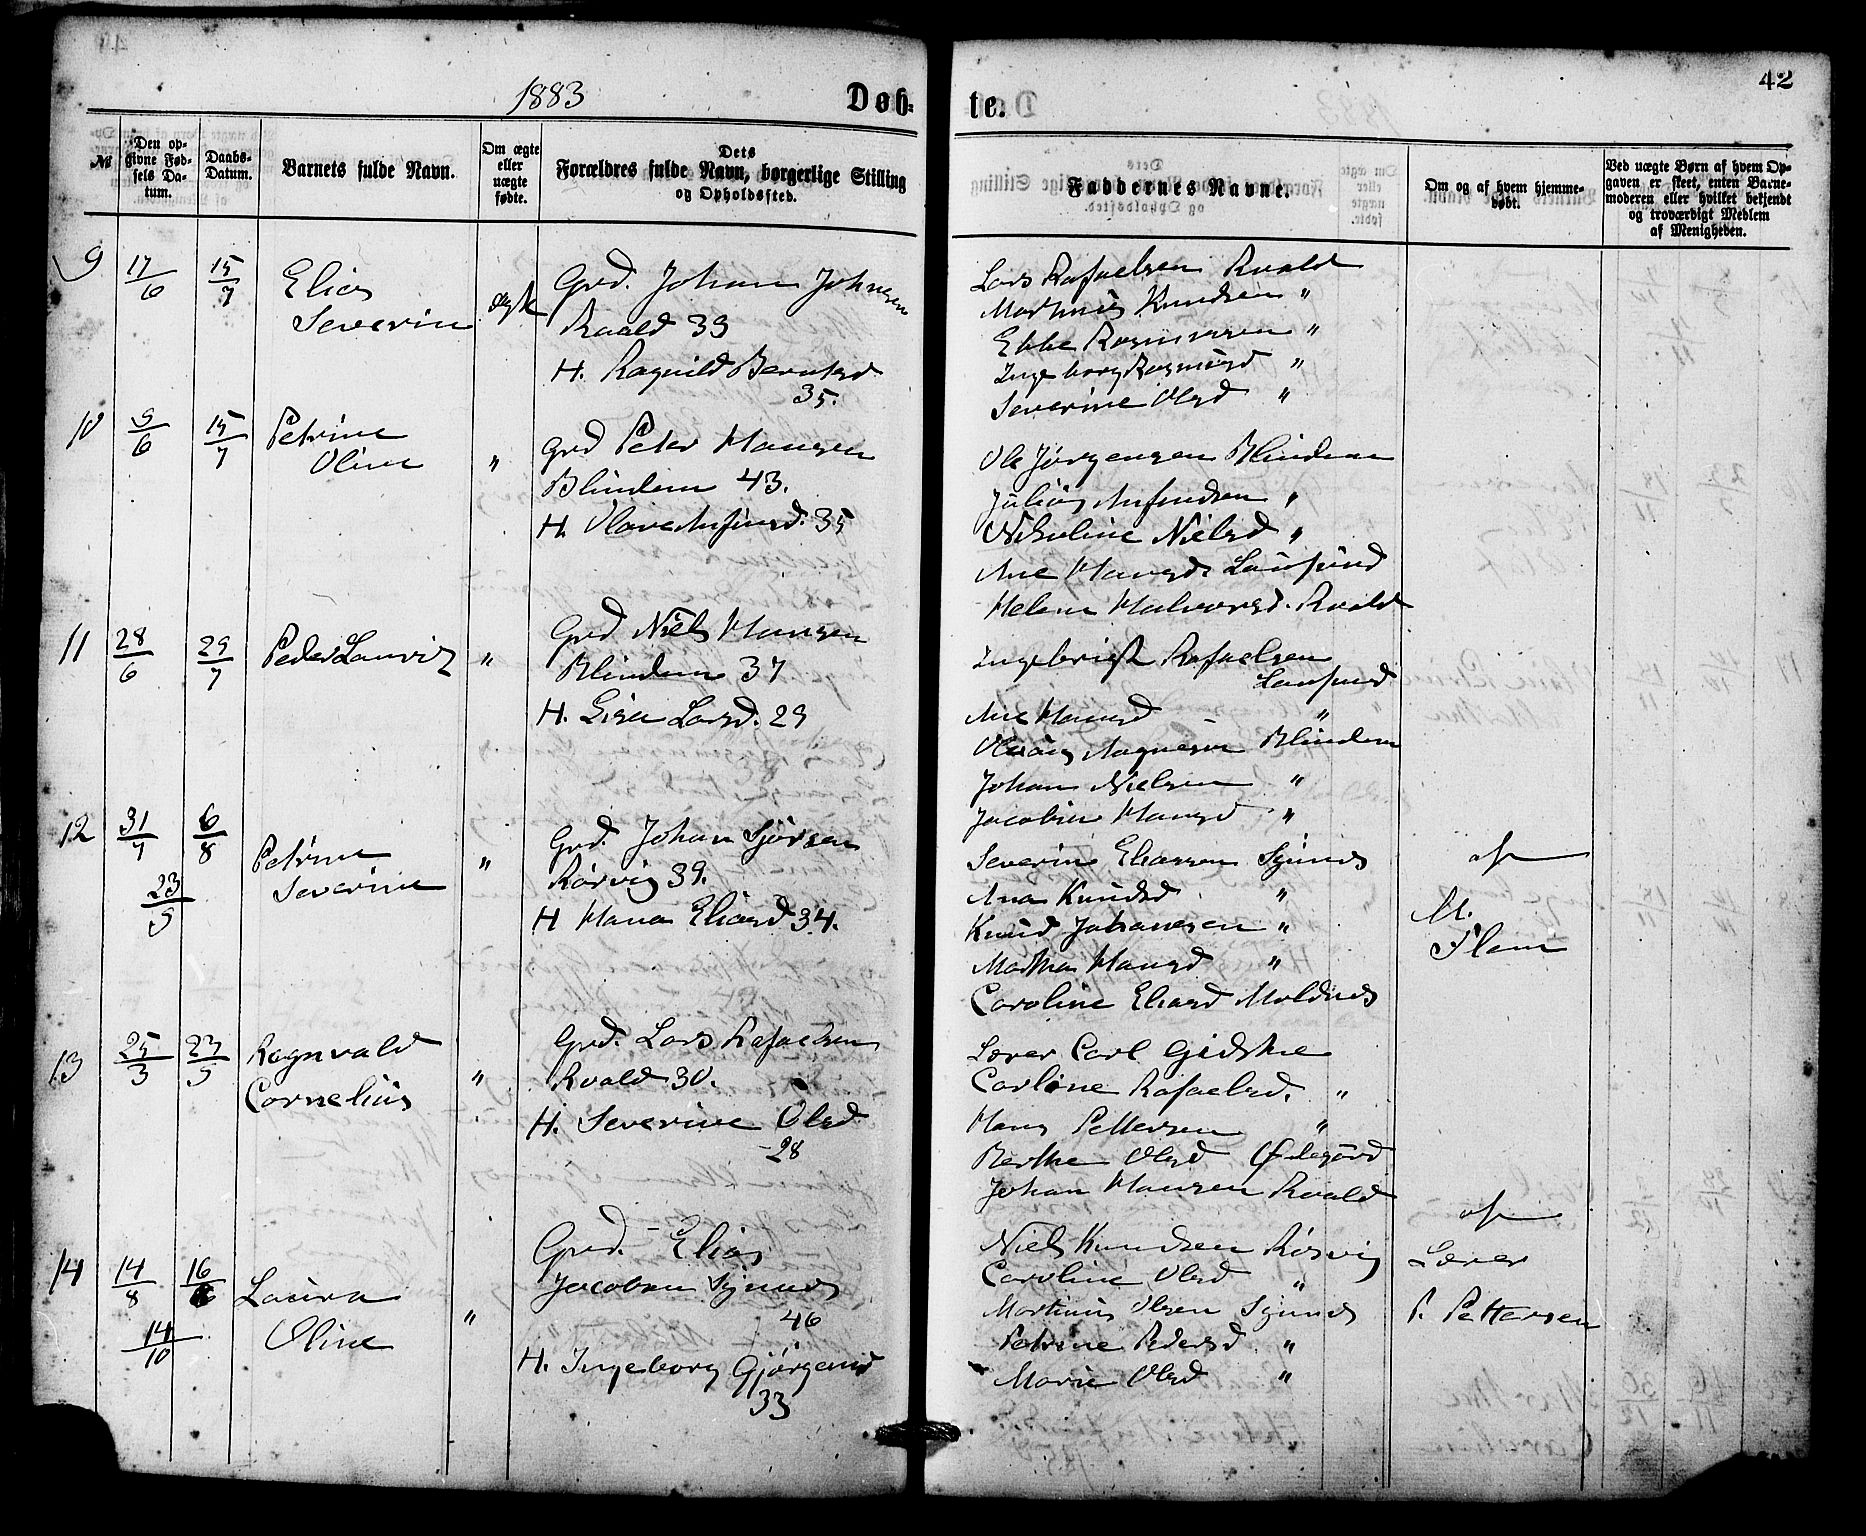 1883
Døb-
te.
42
№
Den op-
givne Fød-
sels Da-
tum.
Daabs-
Datum.
Barnets fulde Navn.
Om ægte
eller
uægte
fødte.
Dets
Forældres fulde Navn, borgerlige Stilling
og Opholdssted.
Faddernes Navne.
Om og af hvem hjemme-
døbt.
Ved uægte Børn af hvem Op-
gaven er skeet, enten Barne-
moderen eller hvilket bekjendt
og troværdigt Medlem
af Menigheden.
9 17/6 15/7 Elias
Severin
ægte
Grd. Johan Johnsen
Roald 39
H. Ragnild Berntsd
35.
Lars Rafaelsen Roald
Martinus Knudsen "
Ebbe Rasmusen "
Ingeborg Rasmusd "
Severine Olsd "
10 9/6 15/7 Petrine
Oline "
Grd Peter Hansen
Blindem 43.
H. Olave Anfinsd. 35
Ole Jørgensen Blindem
Julius Anfindsen "
Nikoline Nielsd "
Ane Hansd. Langsund
Helene Halvorsd. Roald
11 28/6 29/7 Peder Lauritz "
Grd Niels Hansen
Blindem 37
H. Gisn Larsd. 29
Ingebrigt Rafaelsen
Longsund
Ane Hansd "
Olaus Aagnesen Blindem
Johan Nielsen "
Jacobine Hansd "
12 31/7 6/8 Petrine
Severine "
23/9
Grd. Johan Sjørsen
Rørvig 39.
H Hana Eliasd 34.
Severin Eliassen Synnes
Ana Knudsd "
Knud Johansen "
Martha Hansd "
Caroline Eliasd Moldnes
af
M.
Flem
13 25/3 23/9 Ragnvald
Cornelius "
Grd. Lars Rafaelsen
Roald 30.
H. Severine Olsd
28
Lærer Carl Gidske
Carline Rafaelsd. "
Hans Pettersen "
Berthe Olsd Ødegård
Johan Hansen Roald
14 14/8 16/ Laura
Oline "
14/10
Grd. Elias
Jacobsen Synnes
46
H. Ingeborg Gjørgensd
33
Niels Knudsen Rørvig
Caroline Olsd "
Martinus Olsen Synnes
Petrine Pedersd "
Marie Olsd "
af
Lærer
P. Pettersen